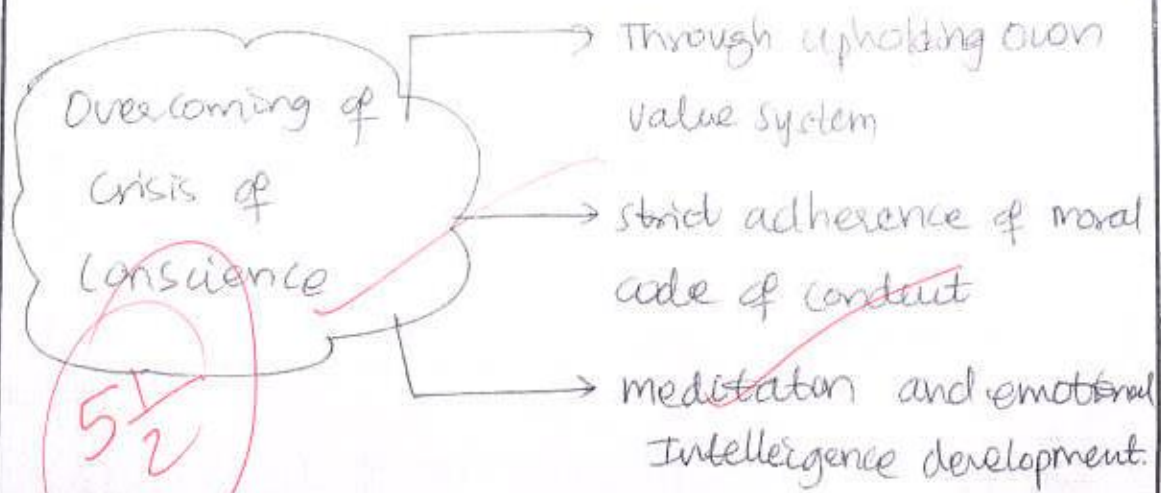 Overcoming of
Crisis of
Conscience
5 1/2
Through upholding own
value system
strict adherence of moral
code of conduct
meditaton and emotional
Intelleigence development.